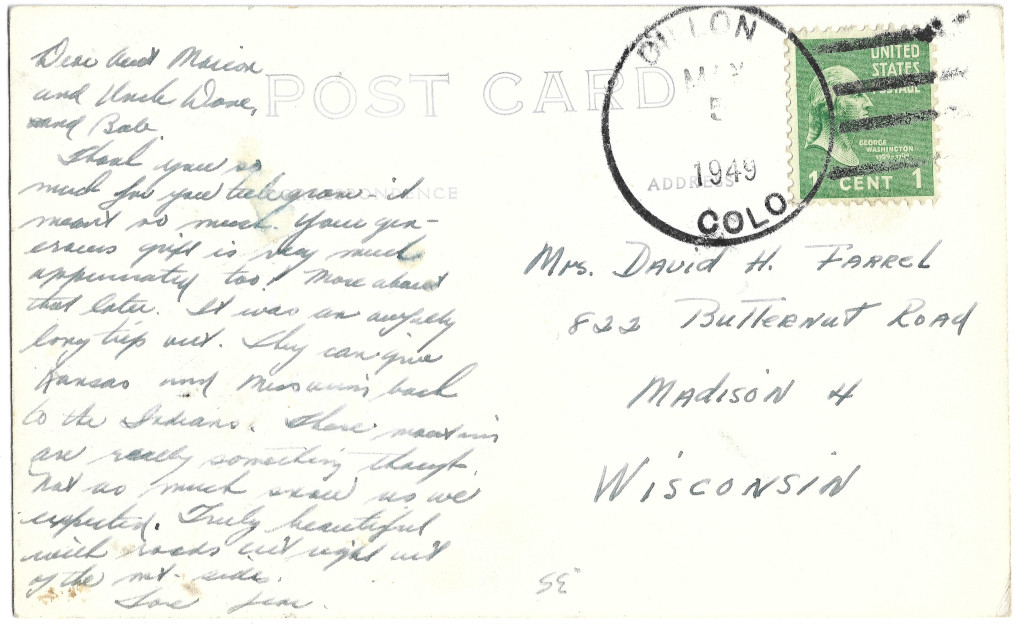 Dear Aunt Marion
and Uncle Dave,
and Bob
Thank you so
much for your telegram it
meant so much. Your gen-
erous gift is very much
appreciated too. More about
that later. It was an awfully
long trip out. They can give
Kansas and Missouri back
to the Indians. These mountains
are really something though.
Not as much snow as we
expected. Truly beautiful
with roads cut right out
of the mt. side.
Love
POST CARD
CORRESPONDENCE
ADDRESS
DILLON
MAY
5
1949
COLO
UNITED
STATES
POSTAGE
GEORGE
WASHINGTON
1789-1797
1 CENT 1
Mrs. David H. Farrel
822 Butternut Road
Madison 4
Wisconsin